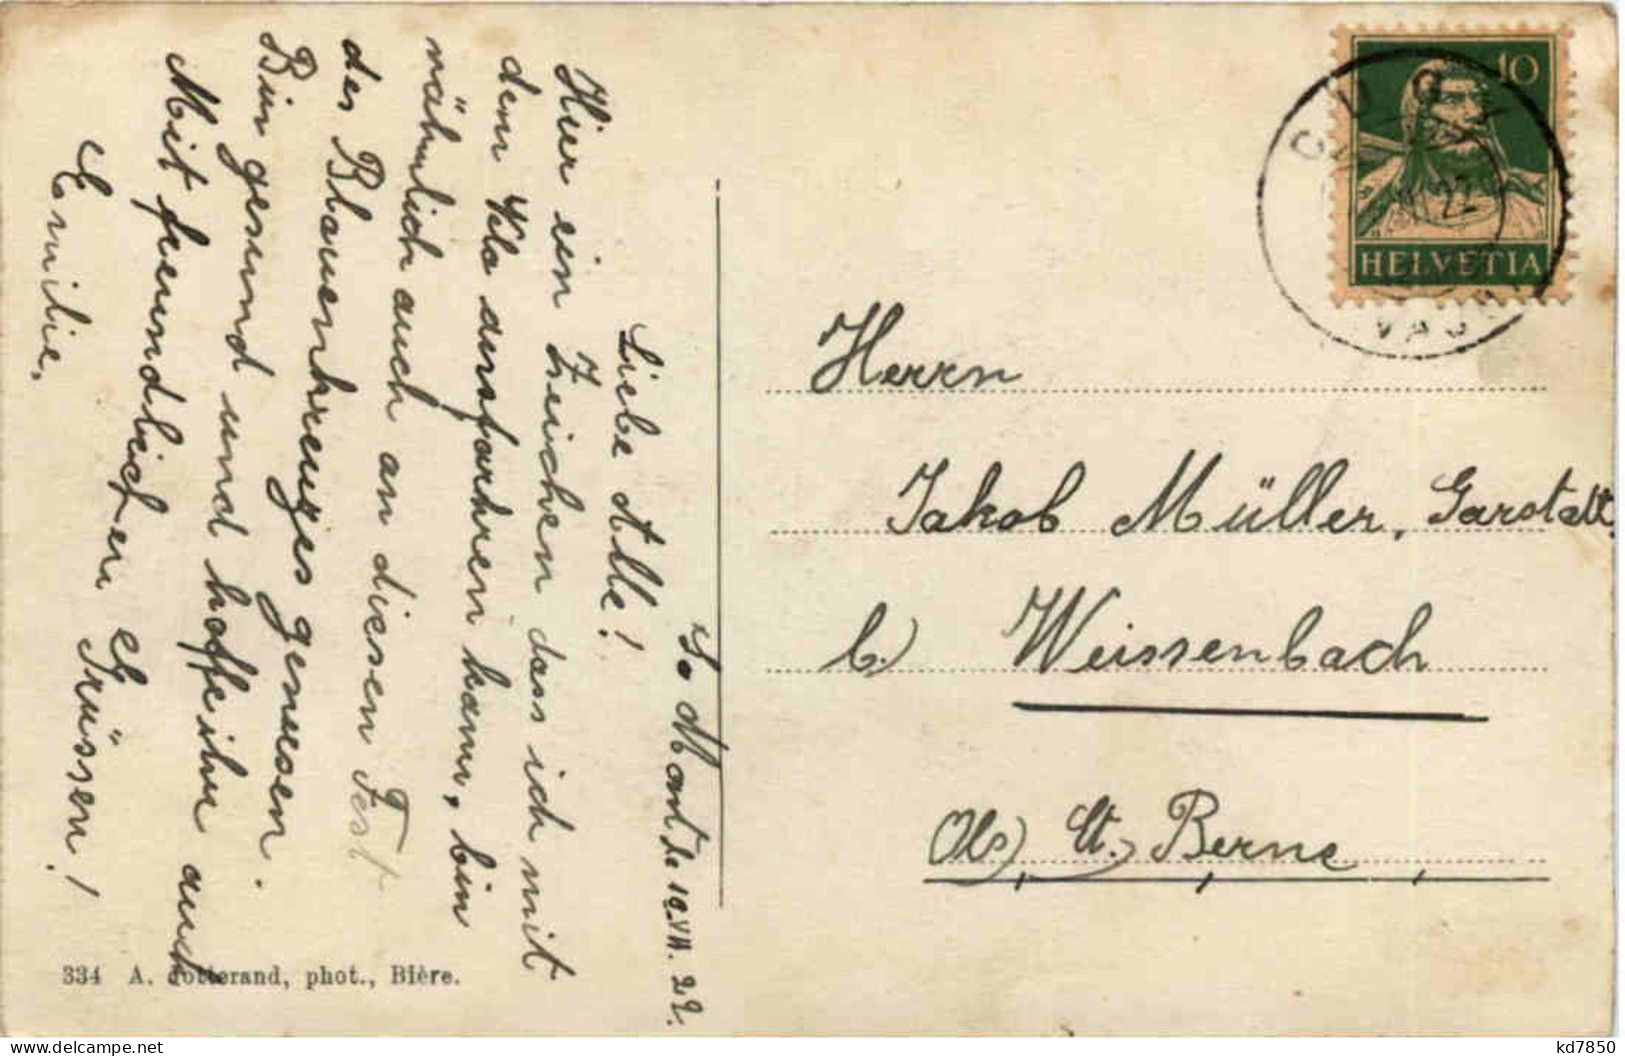 Le Mont, le 19. VII. 22.
Liebe Alle!
Hier ein Zeichen dass ich mit
dem Velo ausfarhren kann, bin
nähmlich auch an diesen Fest
des Blauenkreuzes gewesen.
Bin gesund und hoffe ihr auch
Mit freundlichen Grüssen!
Emilie.
334 A. Potterand, phot., Bière.
10
HELVETIA
22
Herrn
Jakob Müller, Garstatt
b.) Weissenbach
Ct. Berne
kd7850